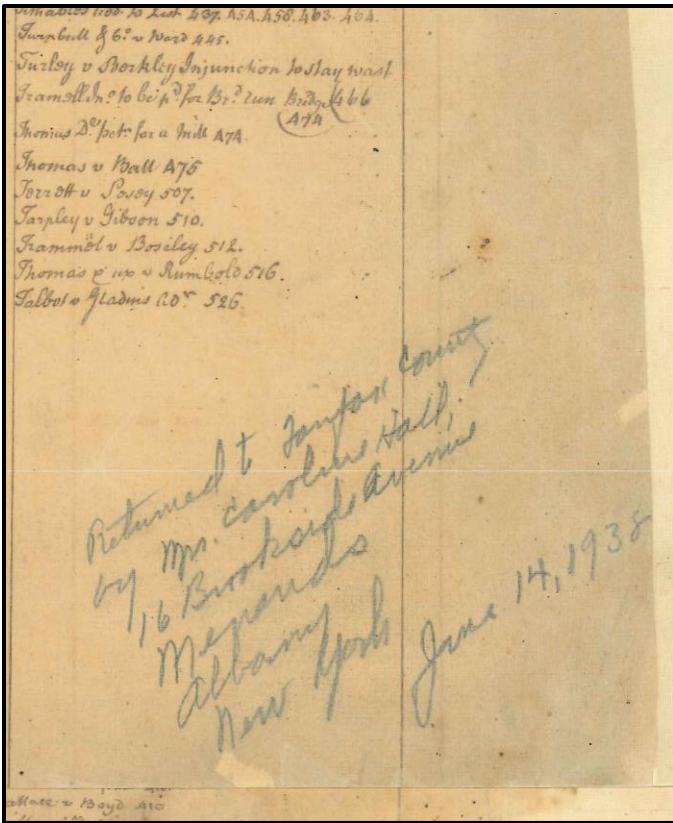 Tithables Ind to List 437. 454. 458. 463. 464.
Turnbull & Co v Ward 445.
Turley v Berkley Injunction to stay wast
Tramell Jno to be pd for Brd run Bridge 466
474
Thomas Dd petn for a Mill 474
Thomas v Ball 475
Terrett v Posey 507.
Tarpley v Gibson 510.
Trammel v Boseley 512.
Thomas & ux v Rumbold 516.
Talbot v Gladins adr 526
Returned to Fairfax County
by Mrs. Caroline Hall,
16 Brookside Avenue
Menands
Albany
New York
June 14, 1938
v Boyd 410